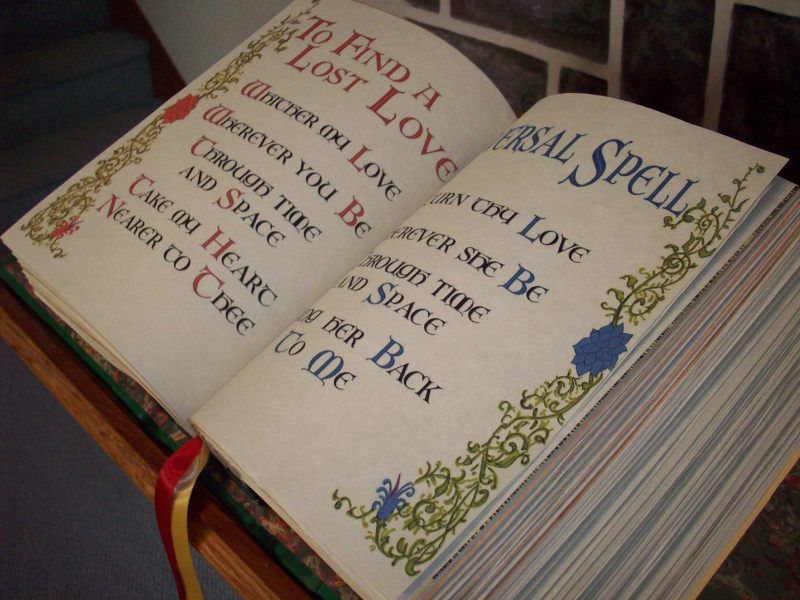 To Find A
Lost Love
Whither my Love
Wherever you Be
Through time
and Space
Take my Heart
Nearer to Thee
ersal Spell
urn thy Love
erever she Be
hrough time
and Space
ng her Back
To Me